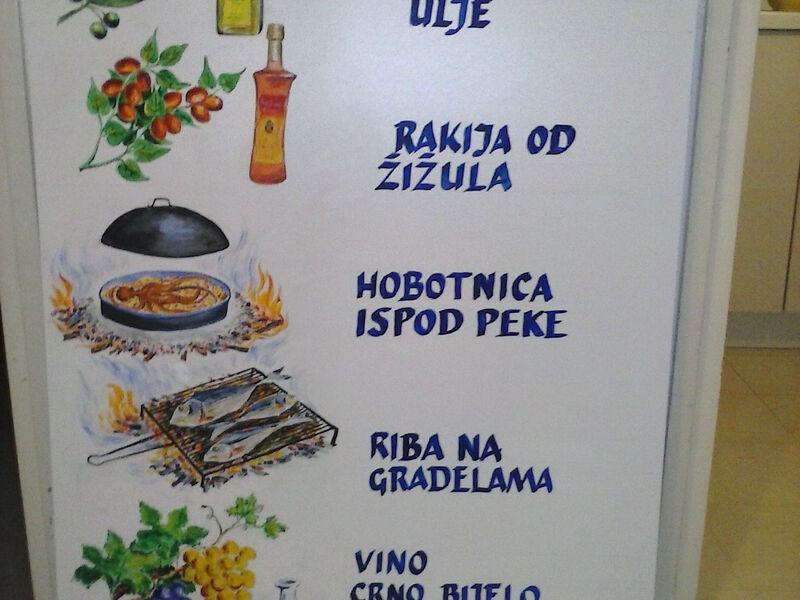 ULJE
RAKIJA OD
ŽIŽULA
HOBOTNICA
ISPOD PEKE
RIBA NA
GRADELAMA
VINO
CRNO BIJELO